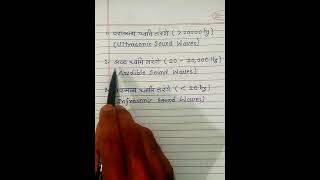 1- पराश्रव्य ध्वनि तरंगे ( > 20000 Hz )
(Ultrasonic Sound Waves)
2- श्रव्य ध्वनि तरंगे ( 20 - 20,000 Hz )
(Audible Sound Waves)
ध्वनि तरंगे ( < 20 Hz )
(Infrasonic Sound Waves)